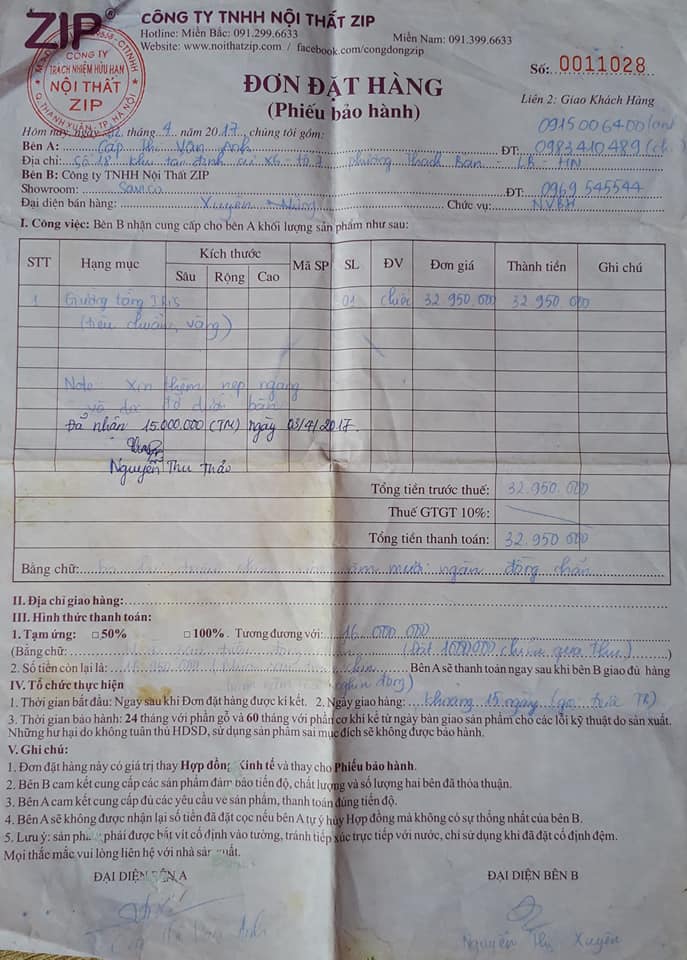 ZIP® CÔNG TY TNHH NỘI THẤT ZIP
Hotline: Miền Bắc: 091.299.6633 Miền Nam: 091.399.6633
Website: www.noithatzip.com / facebook.com/congdongzip
CÔNG TY
TRÁCH NHIỆM HỮU HẠN
NỘI THẤT
ZIP
Q. THANH XUÂN - T.P. HÀ NỘI
Số: 0011028
ĐƠN ĐẶT HÀNG
(Phiếu bảo hành)
Liên 2: Giao Khách Hàng
0915006400
Hôm nay, ngày 02 tháng 4 năm 2017, chúng tôi gồm:
Bên A: Cấp Thị Vân Anh ĐT: 0983410489
Địa chỉ: Số 18 khu tái định cư X6 - tổ 7 phường Thạch Bàn - LB - HN
Bên B: Công ty TNHH Nội Thất ZIP
Showroom: Savico ĐT: 0969 545544
Đại diện bán hàng: Xuyên Chức vụ: NVBH
I. Công việc: Bên B nhận cung cấp cho bên A khối lượng sản phẩm như sau:
STT Hạng mục Kích thước Mã SP SL ĐV Đơn giá Thành tiền Ghi chú
Sâu Rộng Cao
1 Giường tầng IRIS 01 chiếc 32 950 000 32 950 000
(tiêu chuẩn, vàng)
Note: xin thêm nẹp ngang
Đã nhận 15.000.000 (TM) ngày 03/4/2017.
Nguyễn Thu Thảo
Tổng tiền trước thuế: 32 950 000
Thuế GTGT 10%:
Tổng tiền thanh toán: 32 950 000
Bằng chữ: mươi ngàn đồng chẵn
II. Địa chỉ giao hàng:
III. Hình thức thanh toán:
1. Tạm ứng: □ 50% □ 100%. Tương đương với: 16 000 000
(Bằng chữ: )
2. Số tiền còn lại là: 16 950 000 Bên A sẽ thanh toán ngay sau khi bên B giao đủ hàng
IV. Tổ chức thực hiện
1. Thời gian bắt đầu: Ngay sau khi Đơn đặt hàng được kí kết. 2. Ngày giao hàng: khoảng 15 ngày
3. Thời gian bảo hành: 24 tháng với phần gỗ và 60 tháng với phần cơ khí kể từ ngày bàn giao sản phẩm cho các lỗi kỹ thuật do sản xuất.
Những hư hại do không tuân thủ HDSD, sử dụng sản phẩm sai mục đích sẽ không được bảo hành.
V. Ghi chú:
1. Đơn đặt hàng này có giá trị thay Hợp đồng Kinh tế và thay cho Phiếu bảo hành.
2. Bên B cam kết cung cấp các sản phẩm đảm bảo tiến độ, chất lượng và số lượng hai bên đã thỏa thuận.
3. Bên A cam kết cung cấp đủ các yêu cầu về sản phẩm, thanh toán đúng tiến độ.
4. Bên A sẽ không được nhận lại số tiền đã đặt cọc nếu bên A tự ý hủy Hợp đồng mà không có sự thống nhất của bên B.
5. Lưu ý: sản phẩm phải được bắt vít cố định vào tường, tránh tiếp xúc trực tiếp với nước, chỉ sử dụng khi đã đặt cố định đệm.
Mọi thắc mắc vui lòng liên hệ với nhà sản xuất.
ĐẠI DIỆN BÊN A ĐẠI DIỆN BÊN B
Nguyễn Thị Xuyên